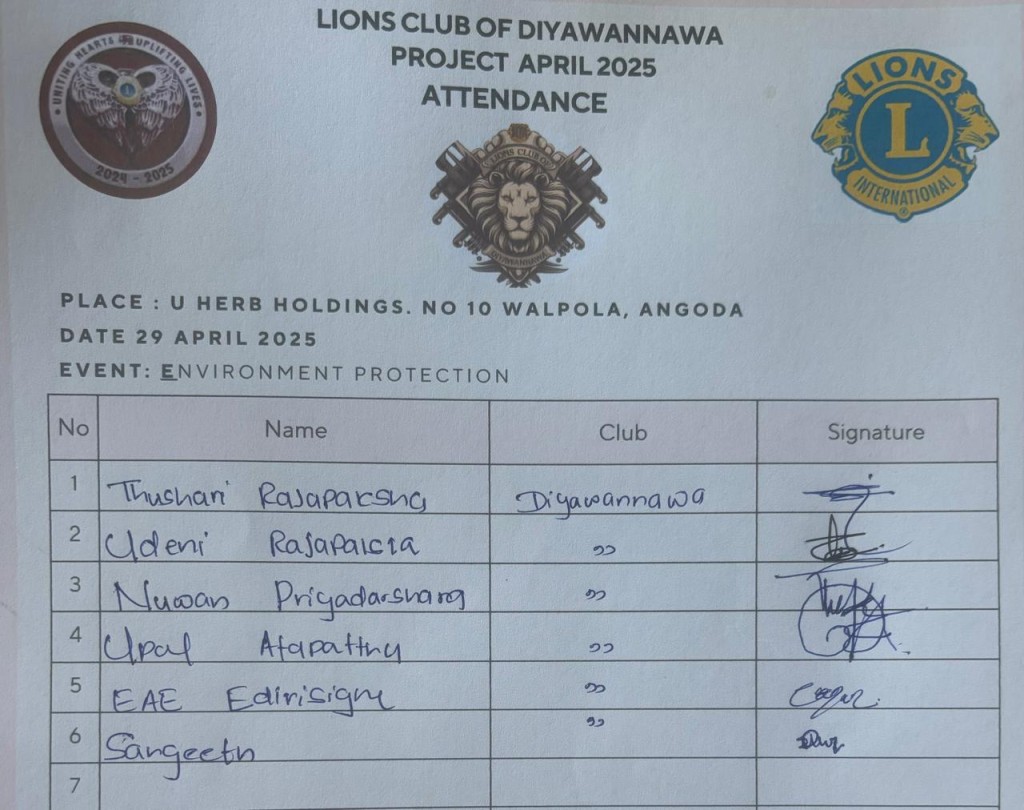 LIONS CLUB OF DIYAWANNAWA
PROJECT APRIL 2025
ATTENDANCE
UNITING HEARTS UPLIFTING LIVES
2024 - 2025
LIONS CLUB OF
DIYAWANNAWA
LIONS
L
INTERNATIONAL
PLACE : U HERB HOLDINGS. NO 10 WALPOLA, ANGODA
DATE 29 APRIL 2025
EVENT: ENVIRONMENT PROTECTION
No Name Club Signature
1 Thushari Rajapaksha Diyawannawa
2 Udeni Rajapaksa "
3 Nuwan Priyadarshana "
4 Upal Atapattu "
5 EAE Edirisigne "
6 Sangeeth "
7